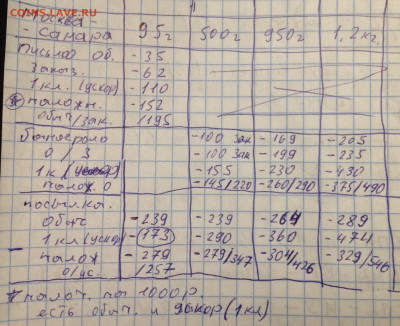 COINS.LAVE.RU
Москва
- Самара 95г 500г 950г 1,2кг.
Письмо об. - 35
Заказ. - 62
1 кл. (ускор) - 110
* наложн. - 152
обыч/зак. /195
бандероль - 100 зак - 169 - 205
О / З - 100 зак - 199 - 235
1 кл - 155 - 230 - 430
налож. О - 145/220 - 260/290 - 375/490
посылка.
обыч - 239 - 239 - 264 - 289
1 кл (ускор) - 173 - 290 - 360 - 474
налож - 279 - 279/347 - 304/426 - 329/546
О/ус. /257
* налож. по 1000р
есть обыч. и ускор (1 кл)